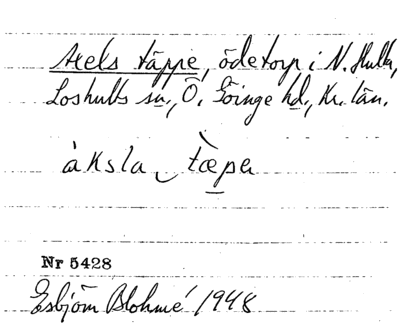 Axels täppe, ödetorp i N. Hult,
Loshults sn., Ö. Göinge hd., Kr. län.
àksla tæpa
Nr 5428
Esbjörn Blohmé 1948